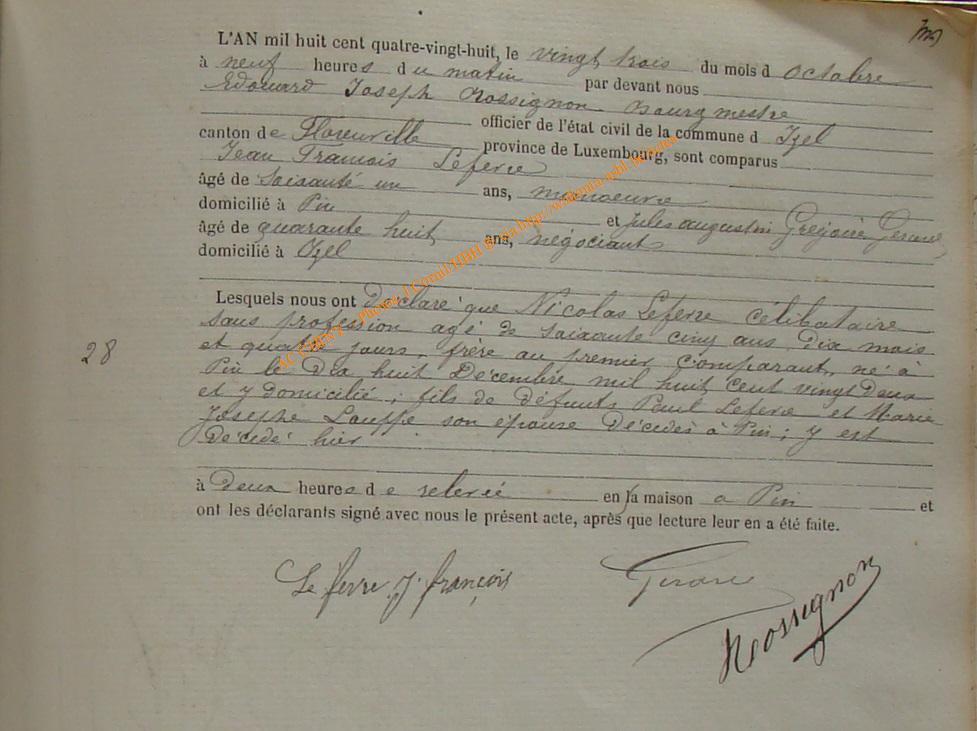 L'AN mil huit cent quatre-vingt-huit, le vingt trois du mois d octobre
à neuf heures du matin par devant nous
Edouard Joseph Rossignon Bourgmestre
officier de l'état civil de la commune d Izel
canton de Florenville province de Luxembourg, sont comparus
Jean Francois Lefevre
âgé de soixante un ans, manoeuvre
domicilié à Pin et Jules augustin Grégoire Gerard
âgé de quarante huit ans, négociant
domicilié à Izel
Lesquels nous ont declaré que Nicolas Lefevre célibataire
sans profession agé de soixante cinq ans dix mois
28
et quatre jours, frère au premier comparant, né à
Pin le dix huit Décembre mil huit cent vingt deux
et y domicilié; fils de défunts Paul Lefevre et Marie
Josephe Louppe son épouse décédés à Pin; y est
décédé hier
à deux heures de relevée en la maison a Pin et
ont les déclarants signé avec nous le présent acte, après que lecture leur en a été faite.
Le fevre J. françois Gerard
Rossignon